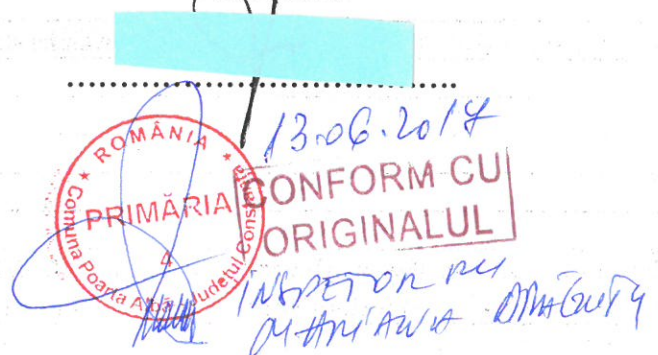 13.06.2017
ROMÂNIA
PRIMĂRIA
4
Comuna Poarta Albă Județul Constanța
CONFORM CU
ORIGINALUL
INSPECTOR RU
MARIANA